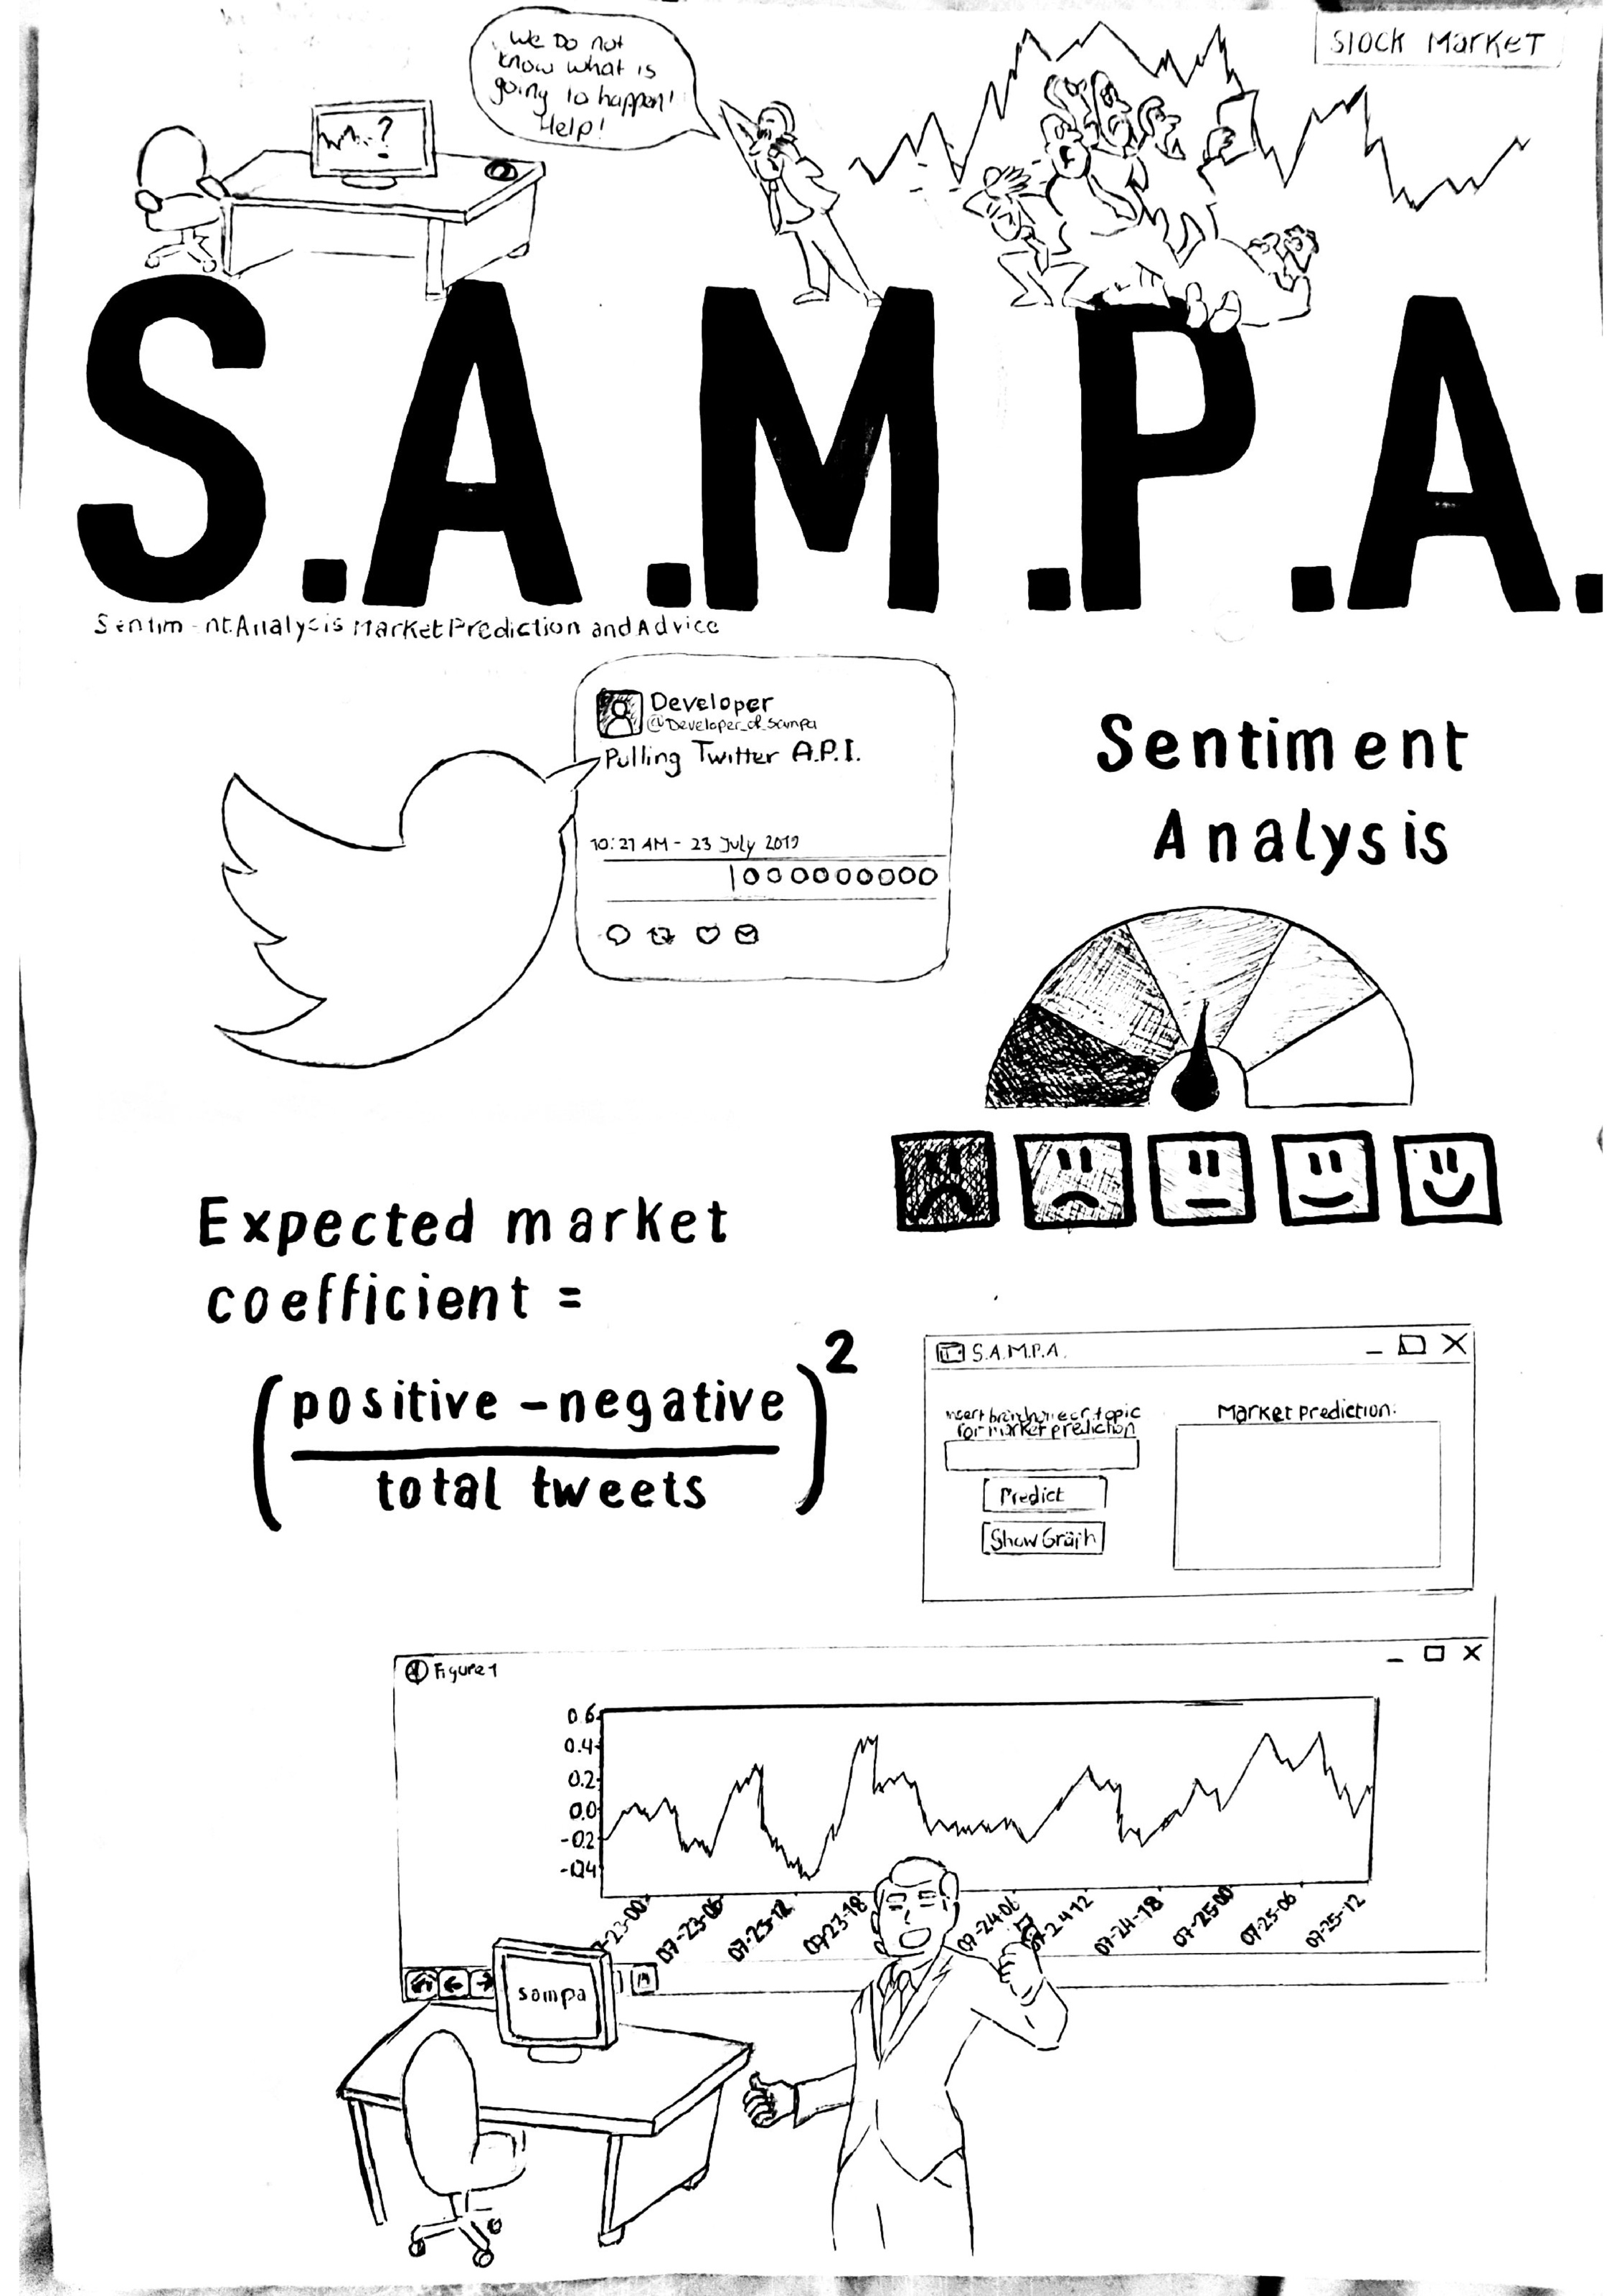 We Do not
know what is
going to happen!
Help!
Stock Market
?
S.A.M.P.A.
Sentim nt Analysis Market Prediction and Advice
Developer
@Developer_of_Sampa
Pulling Twitter A.P.I.
10:21 AM - 23 July 2019
Sentiment
Analysis
Expected market
coefficient =
(positive - negative
total tweets)²
S.A.M.P.A.
or topic
for market prediction
Predict
Show Graph
Market Prediction:
Figure 1
0.6
0.4
0.2
0.0
-0.2
-0.4
-23-00
07-23-06
07-23-12
07-23-18
07-24-06
07-24-12
07-24-18
07-25-00
07-25-06
07-25-12
sampa